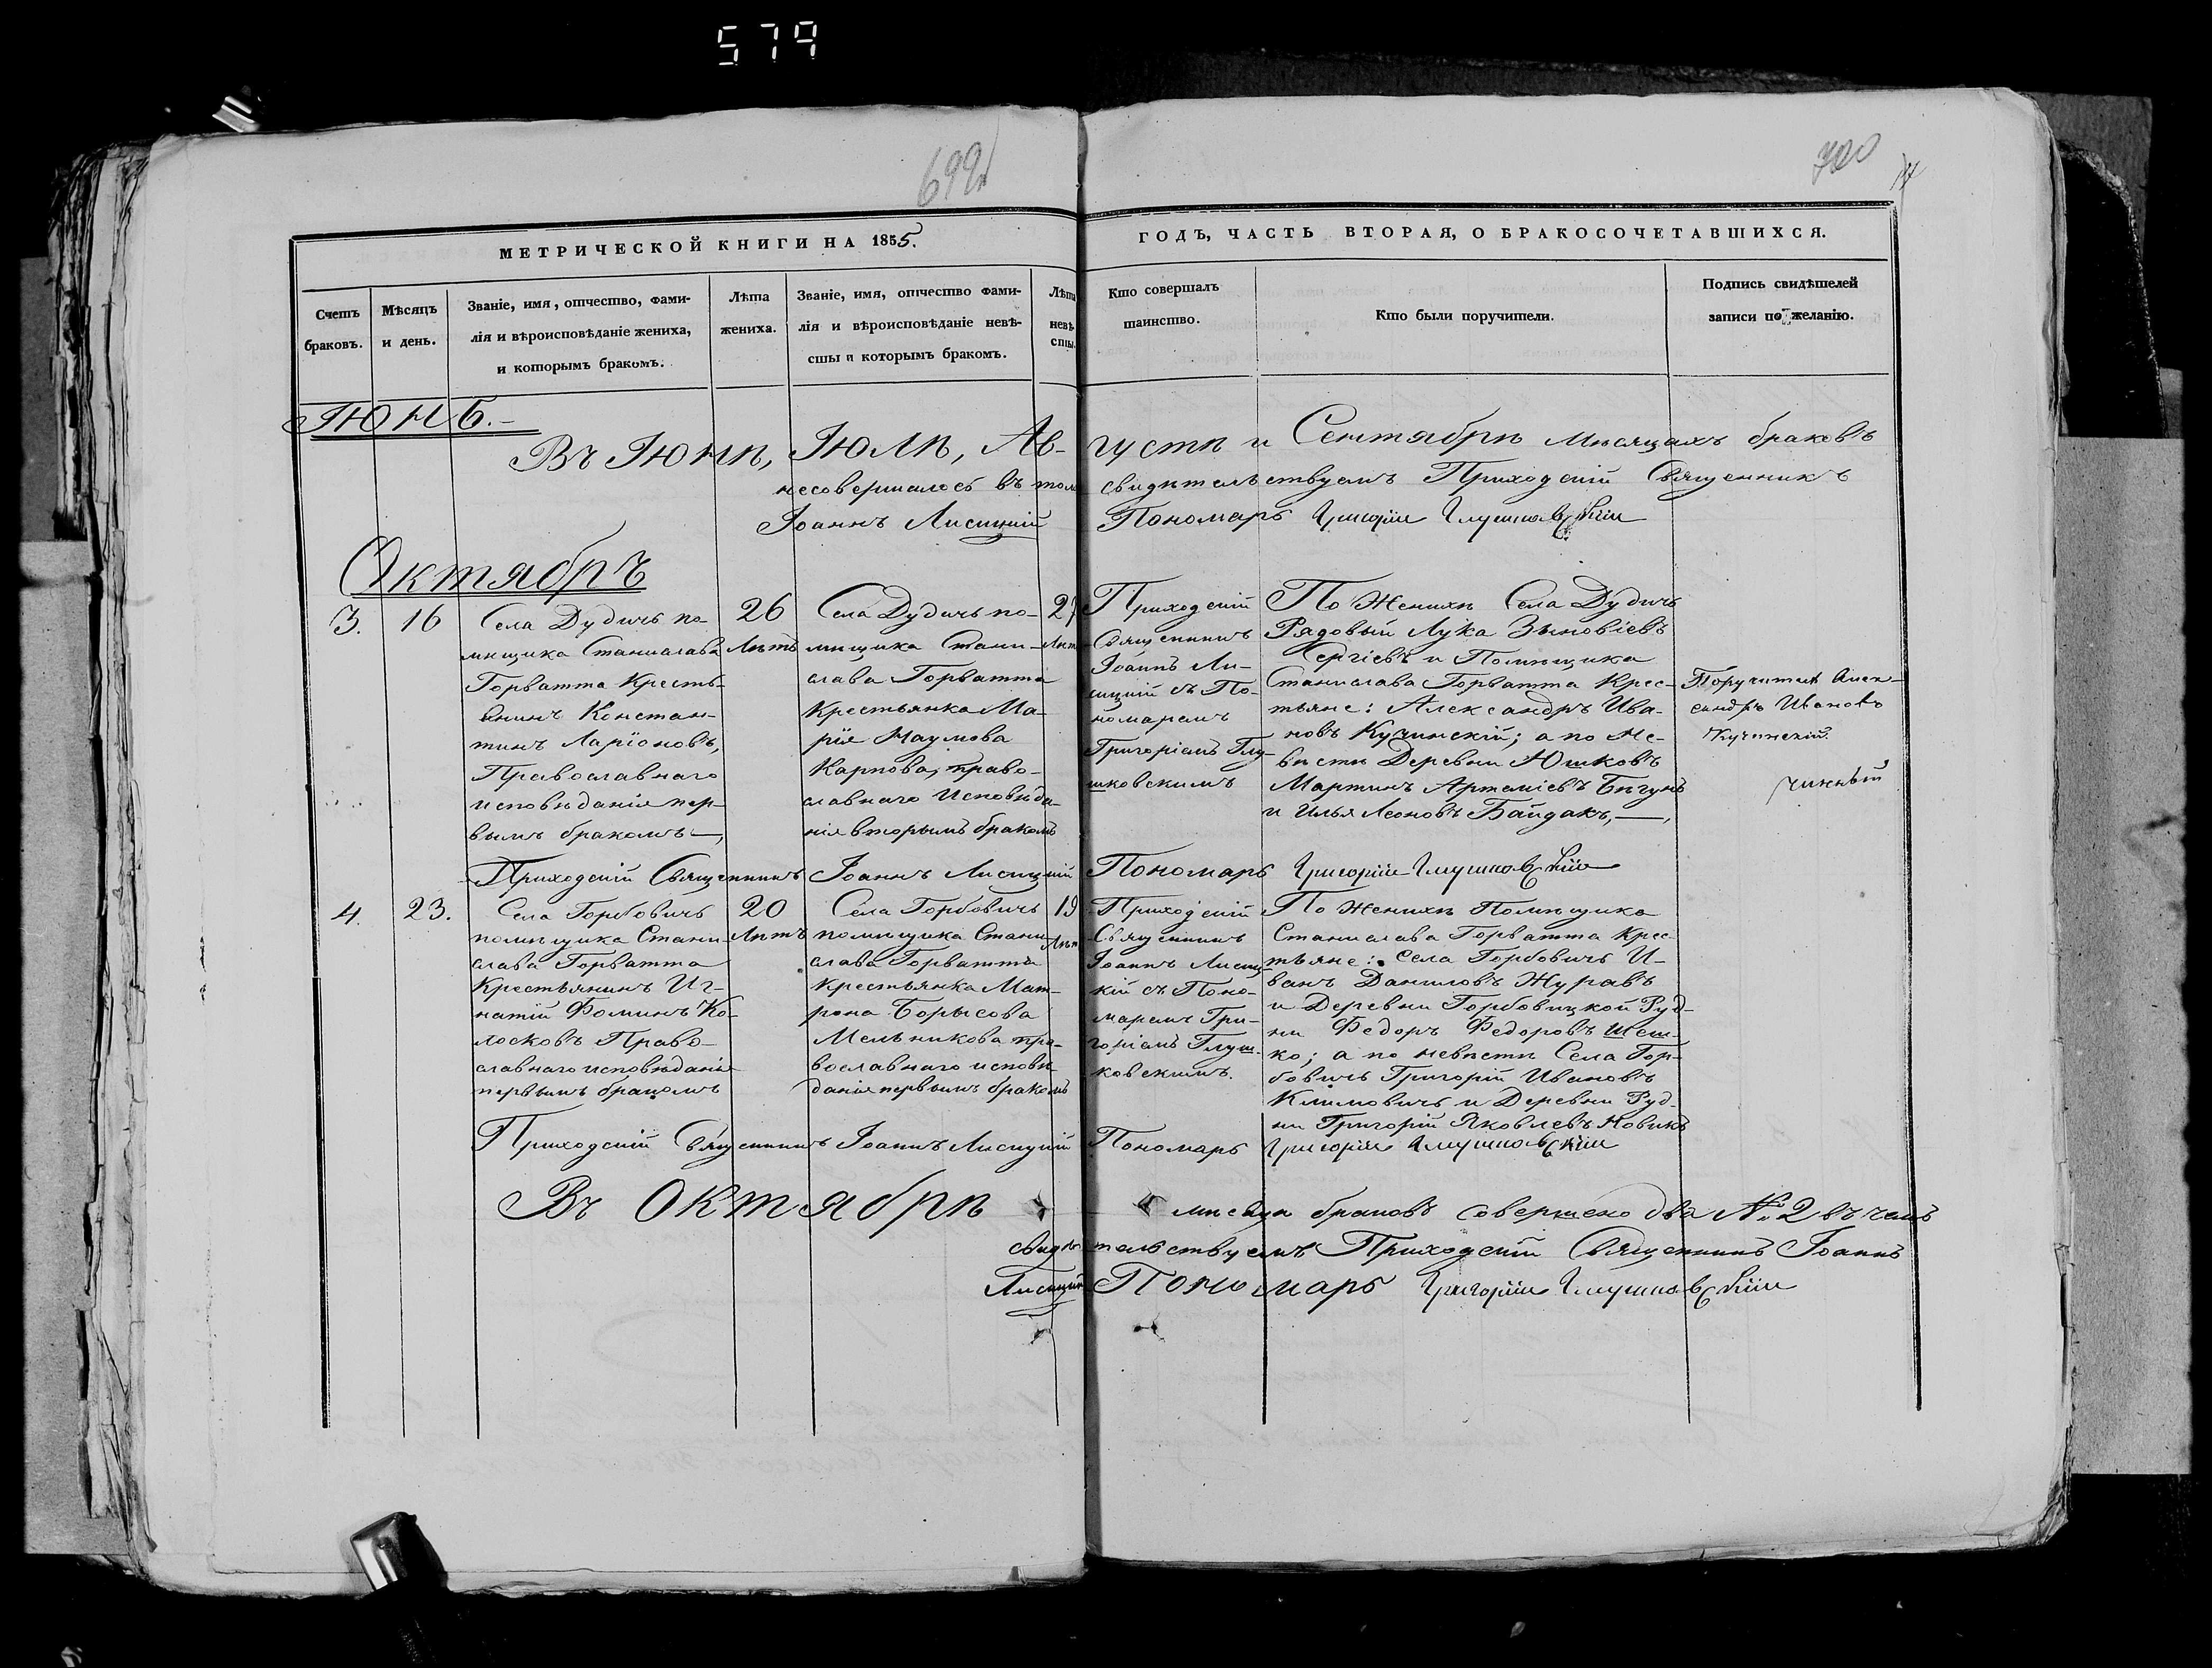 579
699
700
МЕТРИЧЕСКОЙ КНИГИ НА 1855.
ГОДЪ, ЧАСТЬ ВТОРАЯ, О БРАКОСОЧЕТАВШИХСЯ.
Счетъ
браковъ.
Мѣсяцъ
и день.
Званіе, имя, отчество, фами-
лія и вѣроисповѣданіе жениха,
и которымъ бракомъ.
Лѣта
жениха.
Званіе, имя, отчество фами-
лія и вѣроисповѣданіе невѣ-
сты и которымъ бракомъ.
Лѣта
невѣ-
сты.
Кто совершалъ
таинство.
Кто были поручители.
Подпись свидѣтелей
записи по желанію.
Іюнь.-
Въ Іюнѣ, Іюлѣ, Ав-густѣ и Сентябрѣ мѣсяцахъ браковъ
несовершалось въ томъ свидѣтельствуемъ Приходскій Священникъ
Іоаннъ Лисицкій Пономарь Григорій Глушковскій
Октябрь
3.
16
Села Дудичь по-
мѣщика Станислава
Горватта Кресть-
янинъ Констан-
тинъ Ларіоновъ,
Православнаго
исповѣданія пер-
вымъ бракомъ—,
26
Лѣтъ
Села Дудичь по-
мѣщика Стани-
слава Горватта
Крестьянка Ма-
рія Наумова
Карпова, право-
славнаго Исповѣда-
нія вторымъ бракомъ
27
Лѣт
Приходскій
Священникъ
Іоаннъ Ли-
сицкій съ По-
номаремъ
Григоріемъ Глу-
шковскимъ
По Женихѣ Села Дудичь
Рядовый Лука Зѣновіевъ
Сергіевъ и Помѣщика
Станислава Горватта Крес-
тьяне: Александръ Ива-
новъ Кучинскій; а по Не-
вѣстѣ Деревни Юшковъ
Мартинъ Артеміевъ Бѣгунъ
и Илья Леоновъ Байдакъ,—,
Поручитель Алек-
сандръ Ивановъ
Кучинскій.
Приходскій Священникъ Іоаннъ Лисицкій Пономарь Григорій Глушковскій
4.
23.
Села Горбовичь
помѣщика Стани-
слава Горватта
Крестьянинъ Иг-
натій Фоминъ Ко-
лосковъ Право-
славнаго исповѣданія
первымъ бракомъ
20
Лѣтъ
Села Горбовичь
помѣщика Стани-
слава Горватта
Крестьянка Мат-
рона Борысова
Мельникова пра-
вославнаго исповѣ
данія первымъ бракомъ
19
Лѣт
Приходскій
Священникъ
Іоаннъ Лисиц-
кій съ Поно-
маремъ Гри-
горіемъ Глуш-
ковскимъ.
По Женихѣ Помѣщика
Станислава Горватта Крес-
тьяне: Села Горбовичь И-
ванъ Даниловъ Журавъ
и Деревни Горбовицкой Руд-
ни Федоръ Федоровъ Шеш-
ко; а по невѣстѣ Села Гор-
бовичь Григорій Ивановъ
Климовичь и Деревни Руд-
ни Григорій Яковлевъ Новикъ
Приходскій Священникъ Іоаннъ Лисицкій Пономарь Григорій Глушковскій
Въ Октябрѣ мѣсяцѣ браковъ совершено два № 2 въ чемъ
свидѣтельствуемъ Приходскій Священникъ Іоаннъ
Лисицкій Пономарь Григорій Глушковскій